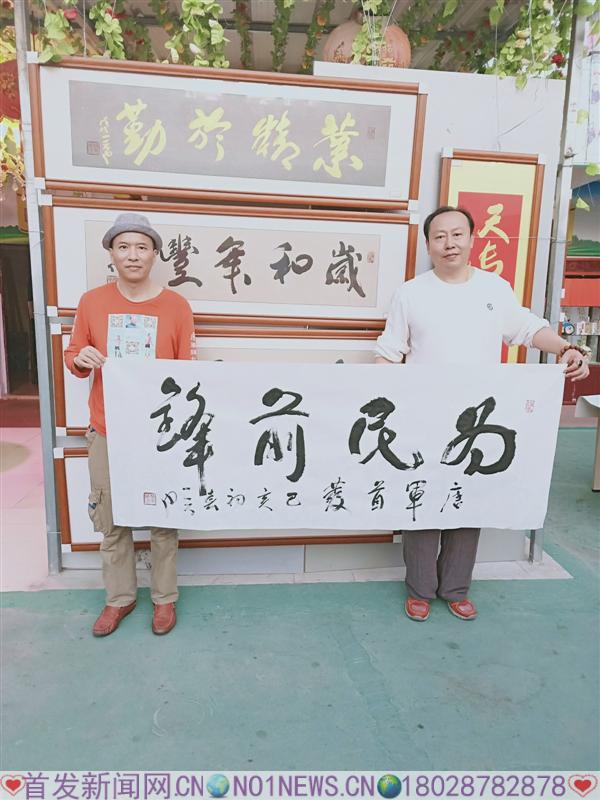 業精於勤
歲和年豐
天長
为民前鋒
唐軍首發己亥初春
首发新闻网.CN NO1NEWS.CN 18028782878